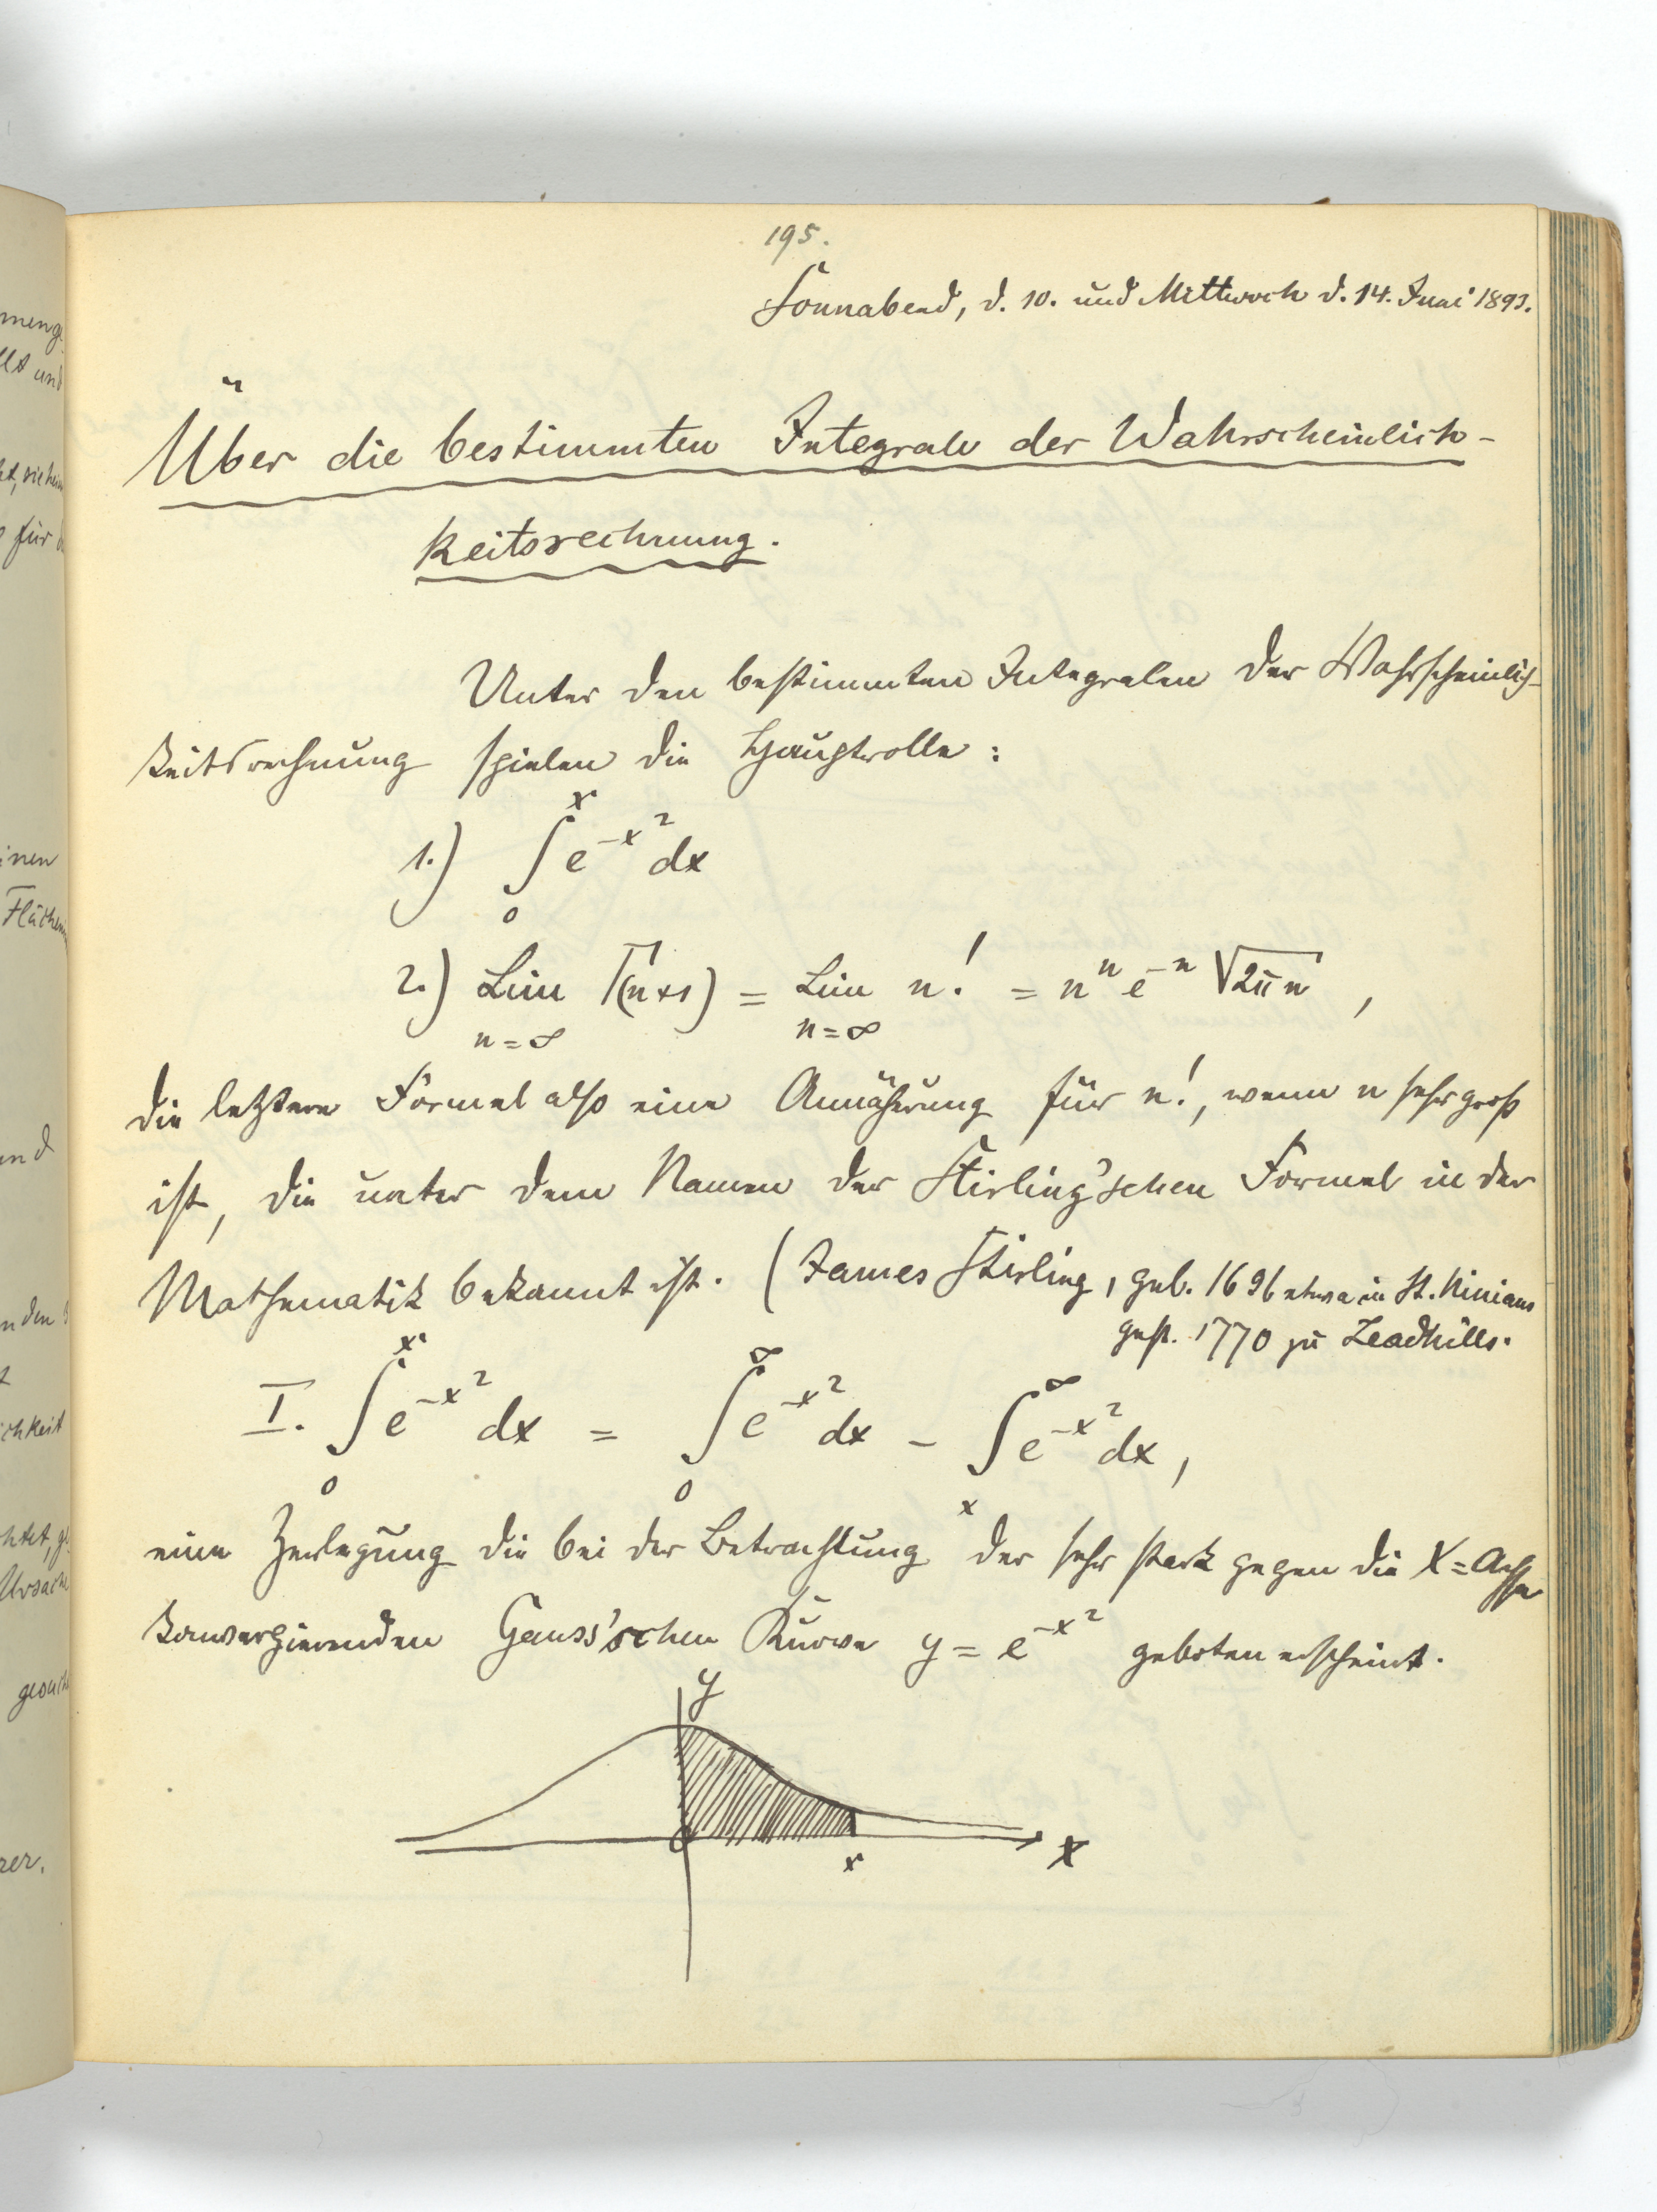 195.
Sonnabend, d. 10. und Mittwoch d. 14. Juni 1893.
Über die bestimmten Integrale der Wahrscheinlich-
keitsrechnung.
Unter den bestimmten Integralen der Wahrscheinlich-
keitsrechnung spielen die Hauptrolle:
1.) ∫₀ˣ e^{-x²} dx
2.) Lim_{n=∞} Γ(n+1) = Lim_{n=∞} n! = nⁿ e⁻ⁿ √(2πn),
die letztere Formel also eine Annäherung für n!, wenn n sehr groß
ist, die unter dem Namen der Stirling'schen Formel in der
Mathematik bekannt ist. (James Stirling, geb. 1696 etwa in St. Ninians
gest. 1770 zu Leadhills.
I. ∫₀ˣ e^{-x²} dx = ∫₀^∞ e^{-x²} dx - ∫ₓ^∞ e^{-x²} dx,
eine Zerlegung die bei der Betrachtung der sehr stark gegen die X=Achse
konvergierenden Gauss'schen Kurve y = e^{-x²} geboten erscheint.
y
0
x
X